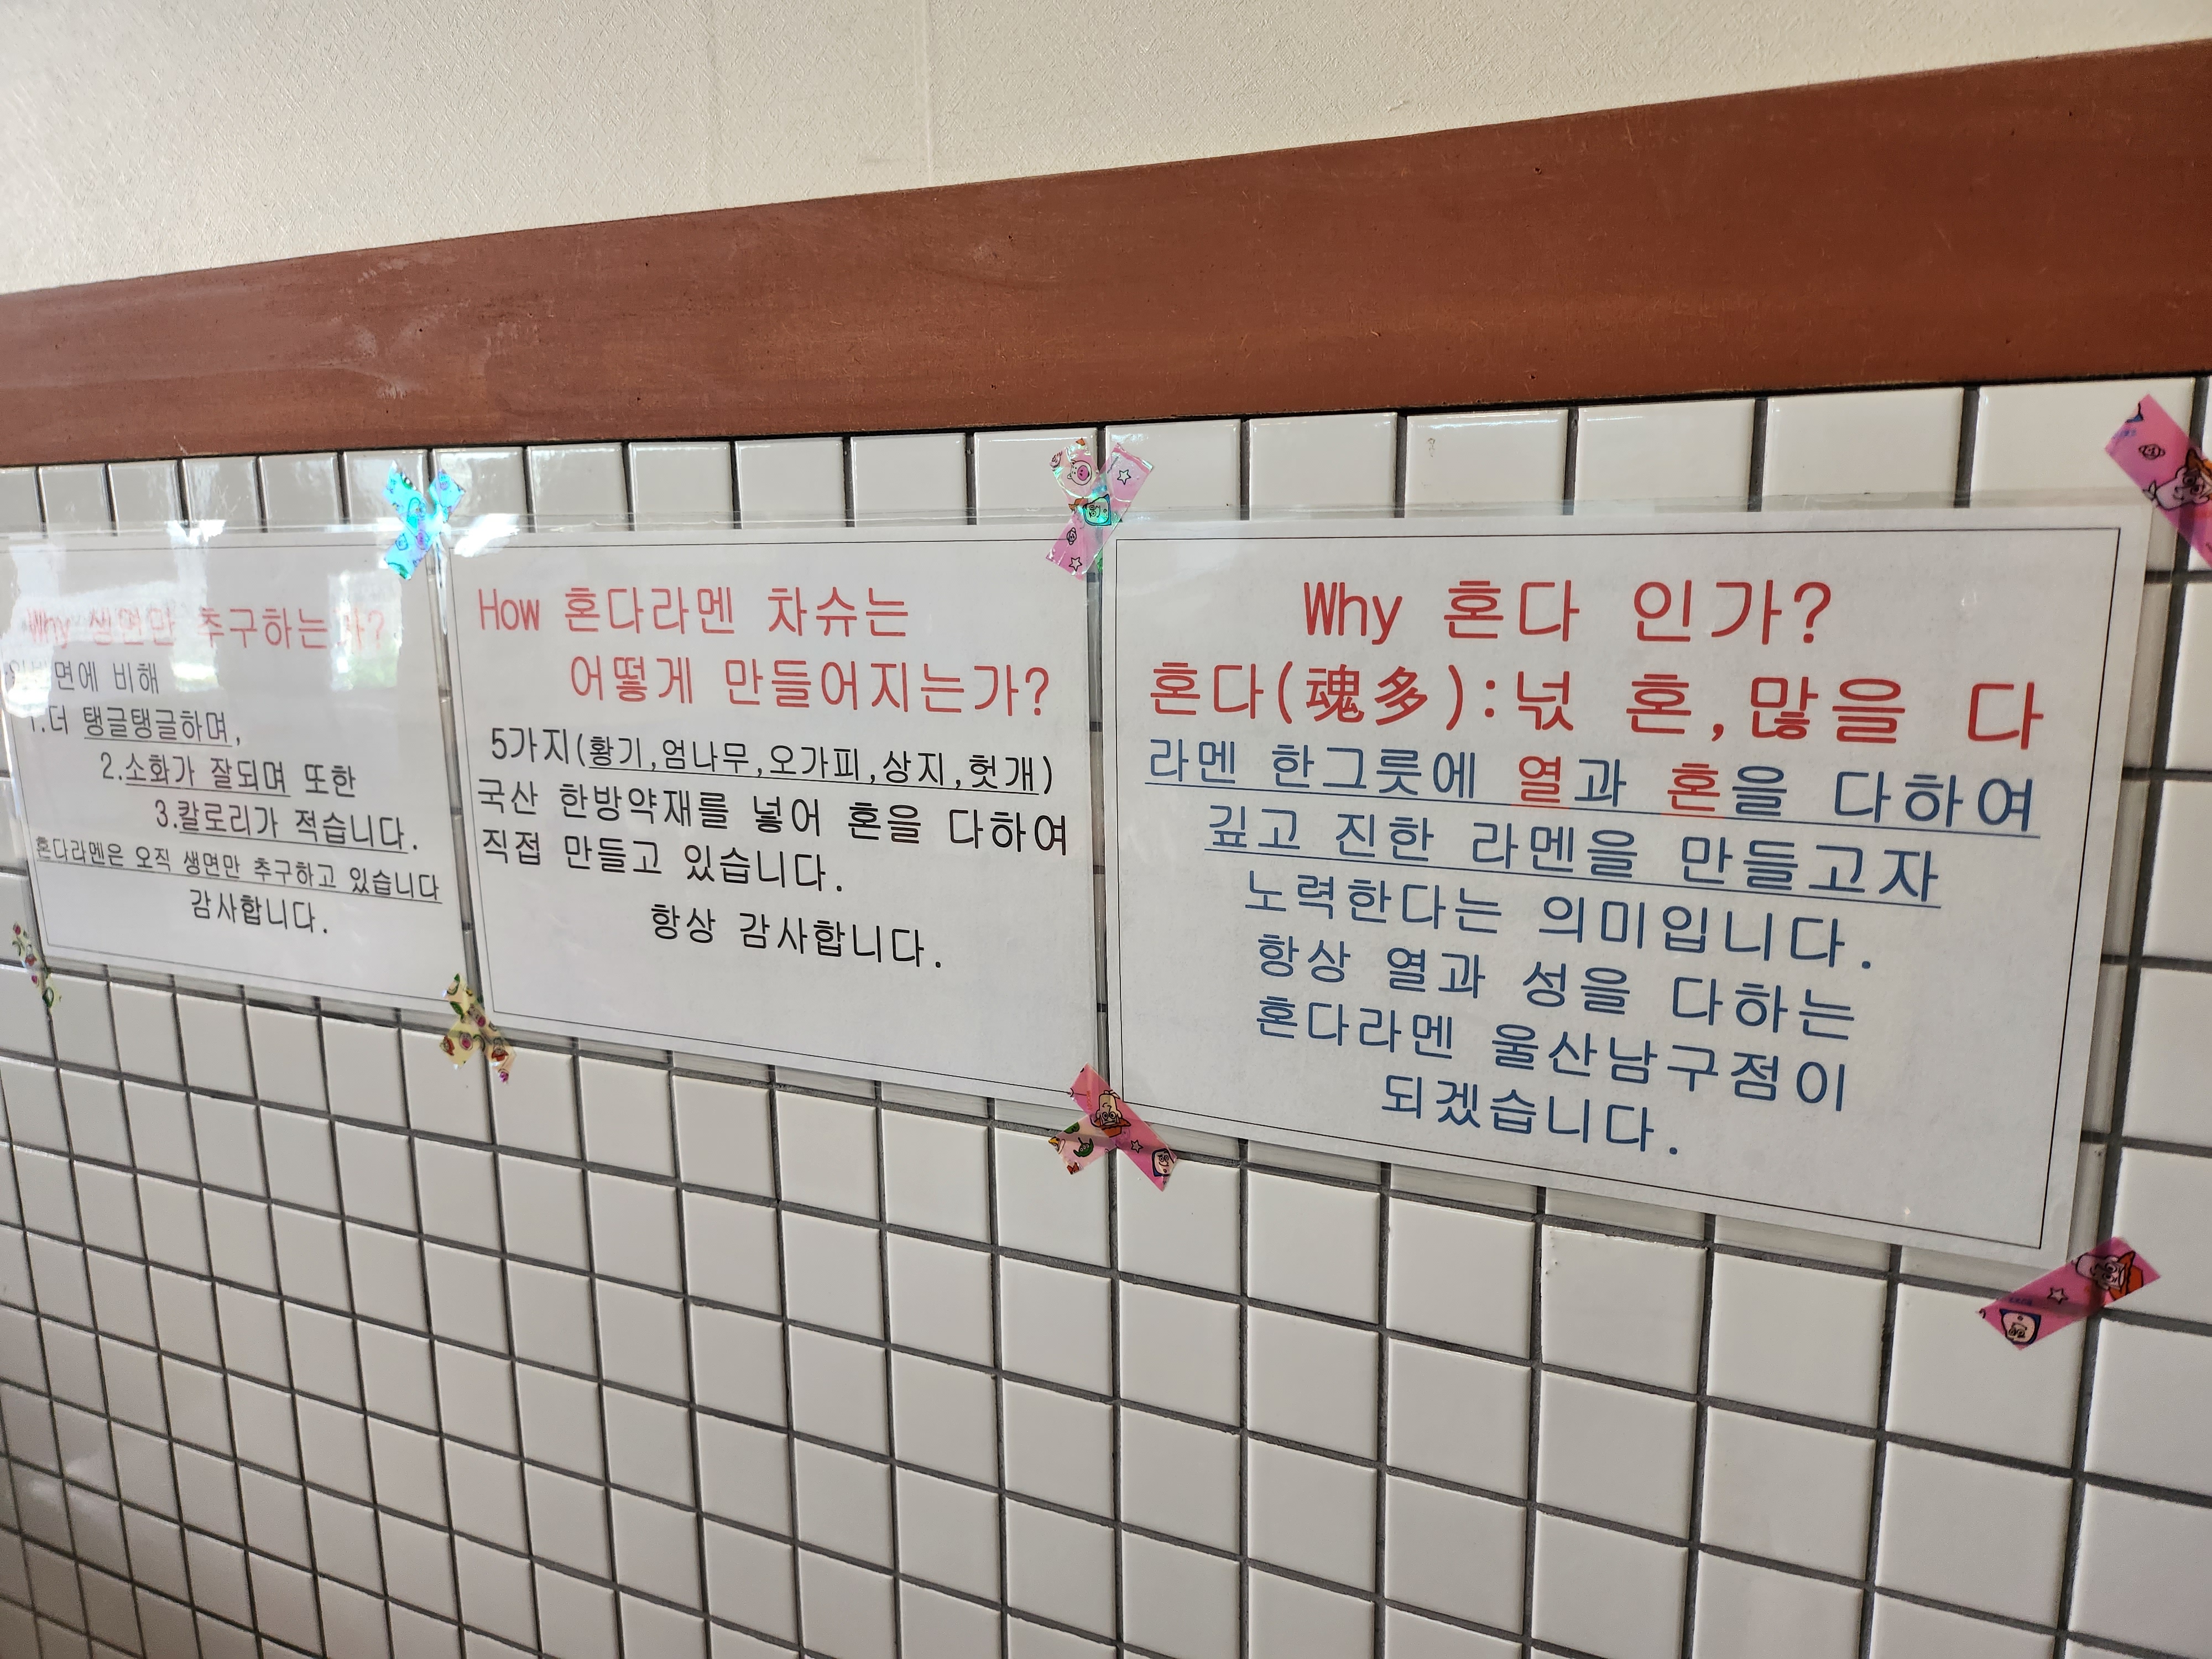 Why 생면만 추구하는가?
면에 비해
1.더 탱글탱글하며,
2.소화가 잘되며 또한
3.칼로리가 적습니다.
혼다라멘은 오직 생면만 추구하고 있습니다
감사합니다.
How 혼다라멘 차슈는
어떻게 만들어지는가?
5가지(황기,엄나무,오가피,상지,헛개)
국산 한방약재를 넣어 혼을 다하여
직접 만들고 있습니다.
항상 감사합니다.
Why 혼다 인가?
혼다(魂多):넋 혼,많을 다
라멘 한그릇에 열과 혼을 다하여
깊고 진한 라멘을 만들고자
노력한다는 의미입니다.
항상 열과 성을 다하는
혼다라멘 울산남구점이
되겠습니다.